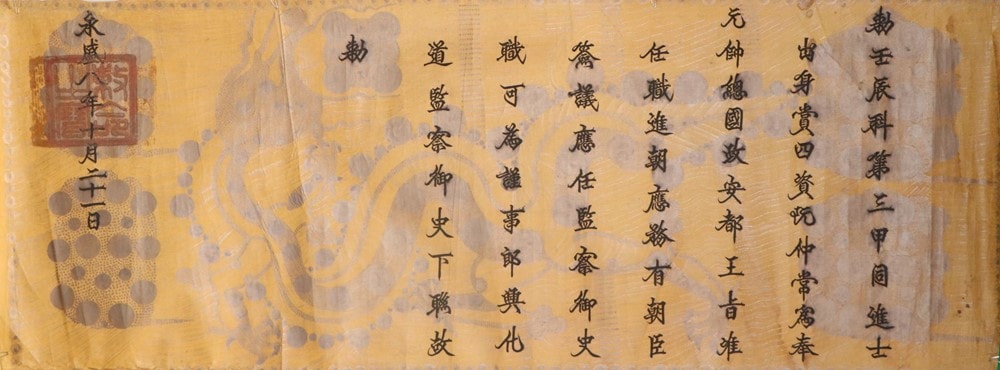 勅壬辰科第三甲同進士
出身賞四資阮仲常為奉
元帥總國政安都王旨准
任職進朝應務有朝臣
簽議應任監察御史
職可為謹事郎興化
道監察御史下聯故
勅
永盛八年十月二十一日
敕命之寶